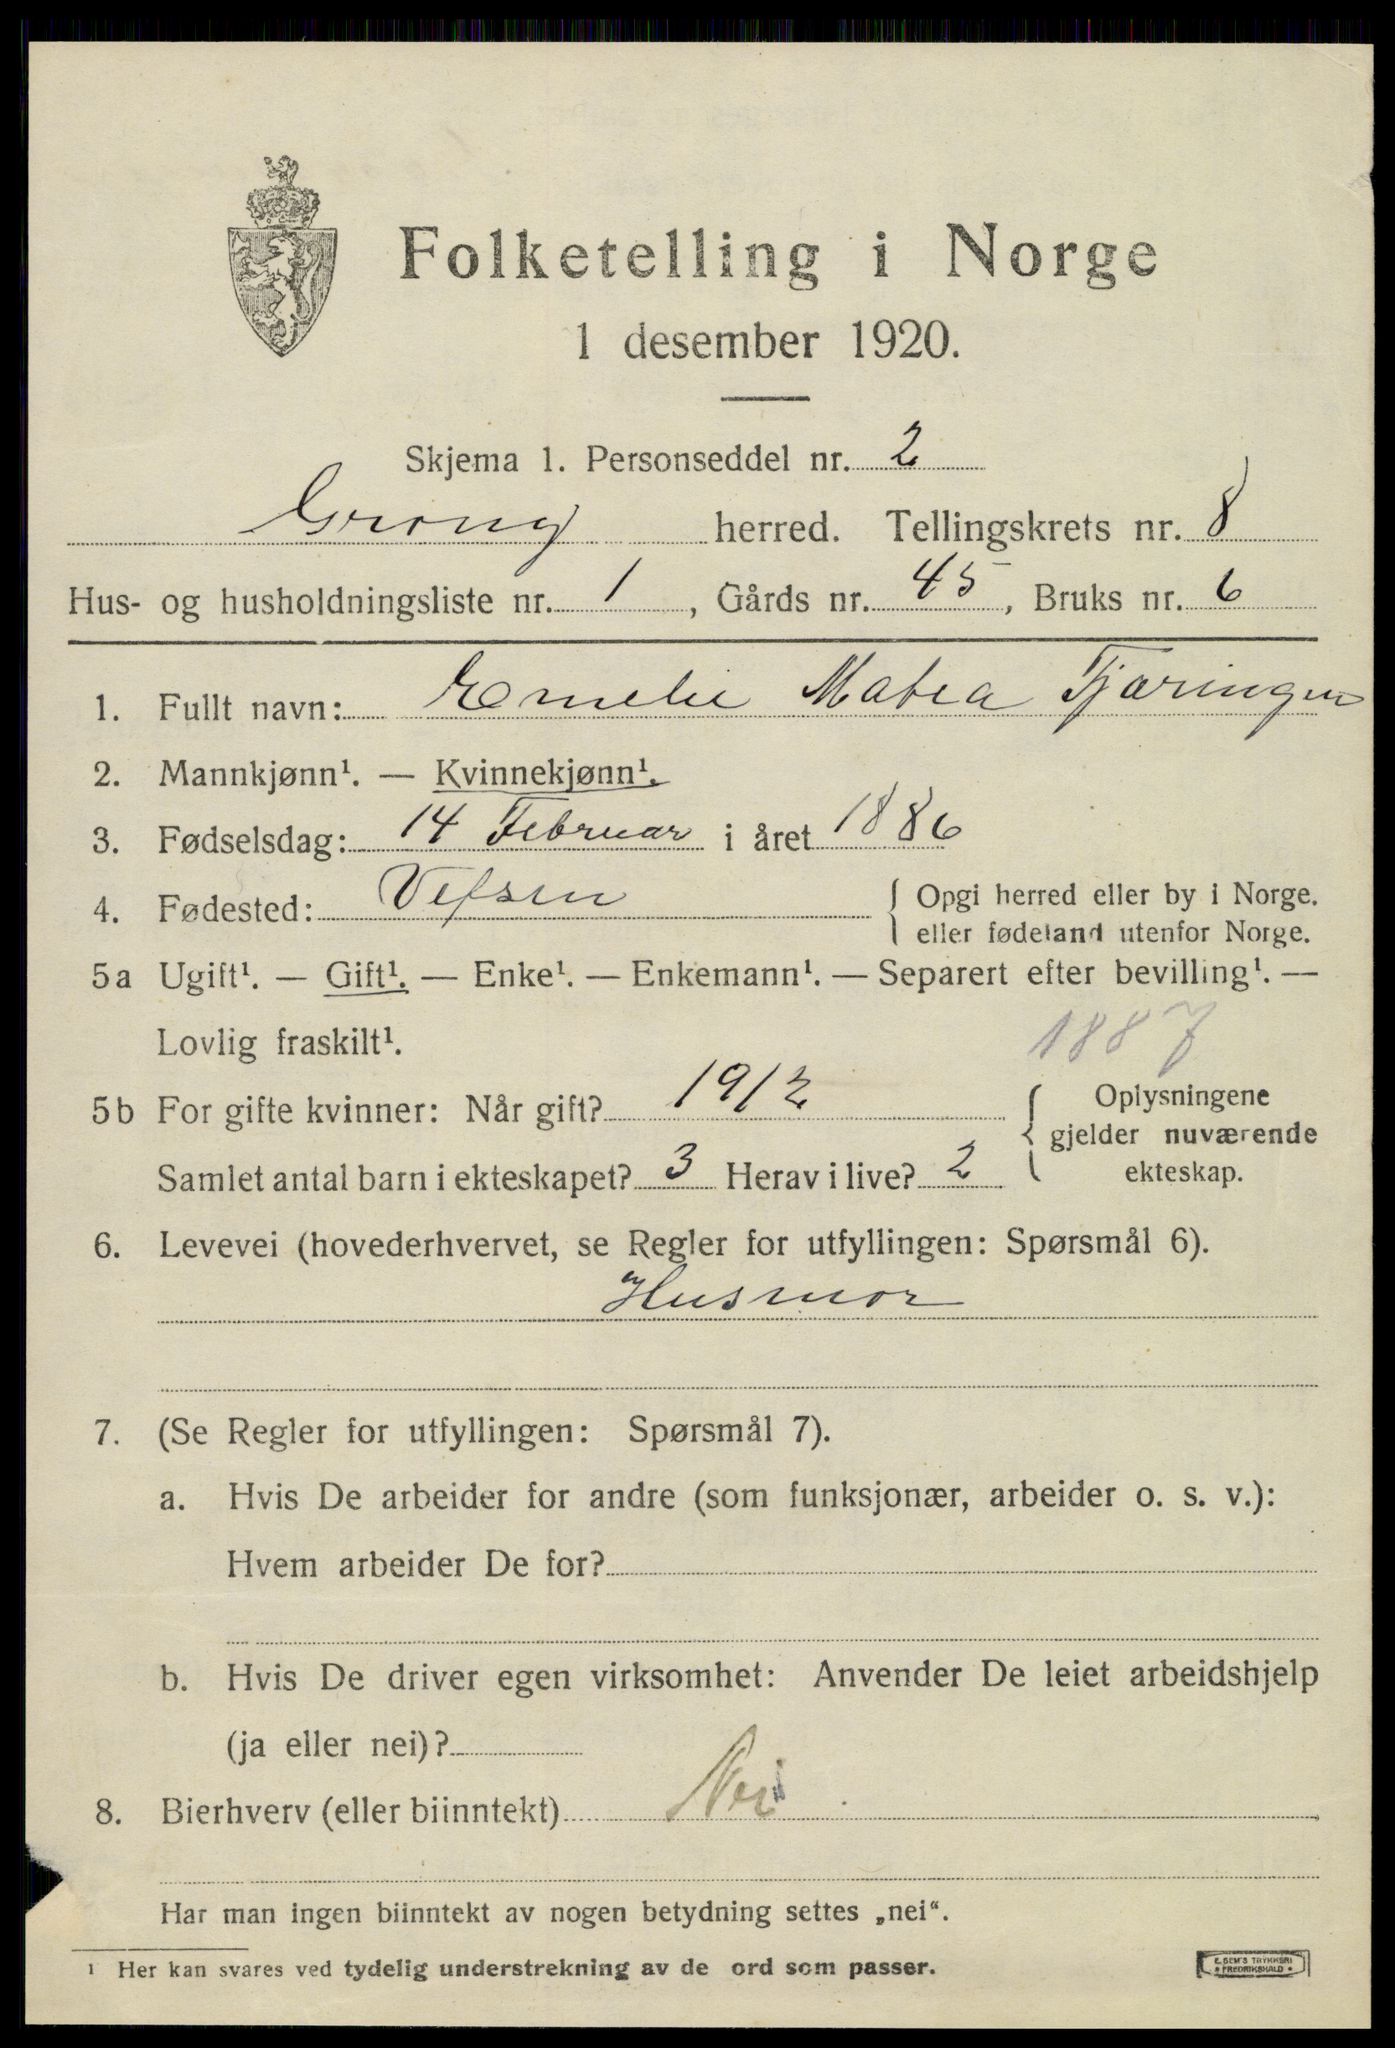 Folketelling i Norge
1 desember 1920.
Skjema 1. Personseddel nr. 2
Grong herred. Tellingskrets nr. 8
Hus- og husholdningsliste nr. 1, Gårds nr. 45, Bruks nr. 6
1. Fullt navn: Emelie Matea Tjæringen
2. Mannkjønn¹. — Kvinnekjønn¹.
3. Fødselsdag: 14 Februar i året 1886
4. Fødested: Vefsen { Opgi herred eller by i Norge.
eller fødeland utenfor Norge.
5a Ugift¹. — Gift¹. — Enke¹. — Enkemann¹. — Separert efter bevilling¹. —
Lovlig fraskilt¹. 1887
5b For gifte kvinner: Når gift? 1912 { Oplysningene
gjelder nuværende
Samlet antal barn i ekteskapet? 3 Herav i live? 2 ekteskap.
6. Levevei (hovederhvervet, se Regler for utfyllingen: Spørsmål 6).
Husmor
7. (Se Regler for utfyllingen: Spørsmål 7).
a. Hvis De arbeider for andre (som funksjonær, arbeider o. s. v.):
Hvem arbeider De for?
b. Hvis De driver egen virksomhet: Anvender De leiet arbeidshjelp
(ja eller nei)?
8. Bierhverv (eller biinntekt) Nei
Har man ingen biinntekt av nogen betydning settes „nei“.
¹ Her kan svares ved tydelig understrekning av de ord som passer.
E. SEM'S TRYKKERI
• FREDRIKSHALD •